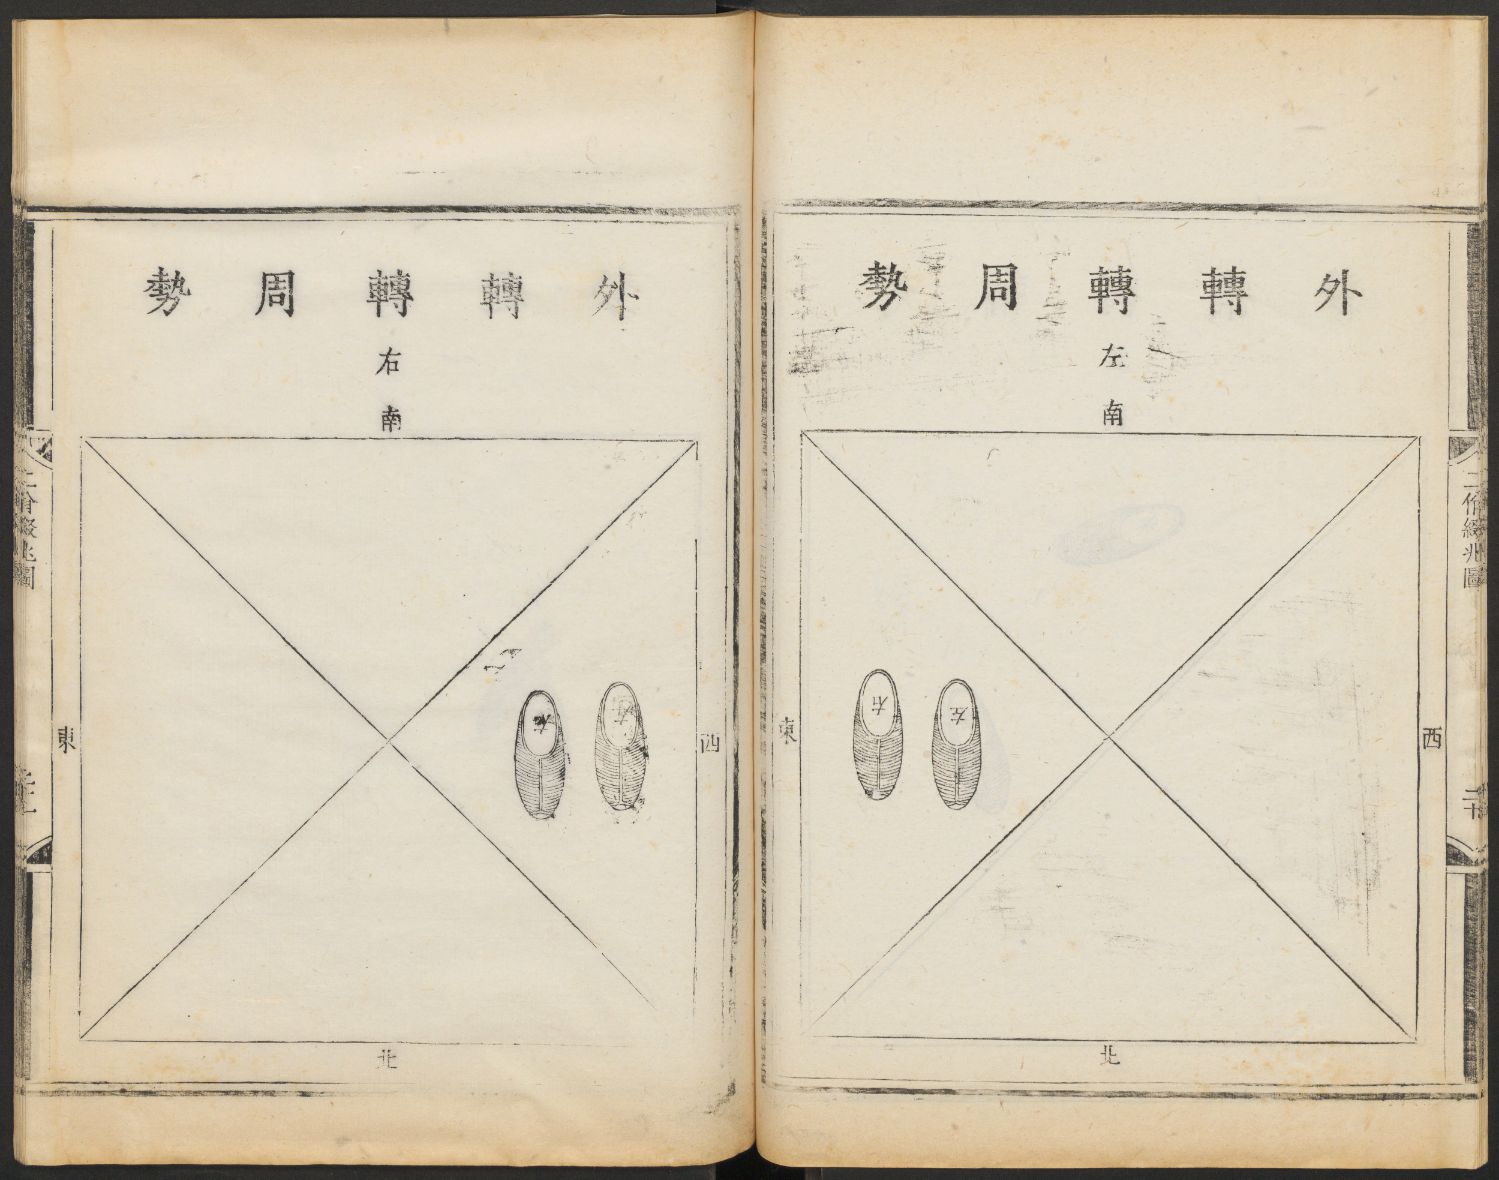 外轉轉周勢
左
南
東
西
右
左
北
二佾綴兆圖
二十
外轉轉周勢
右
南
東
西
右
北
二佾綴兆圖